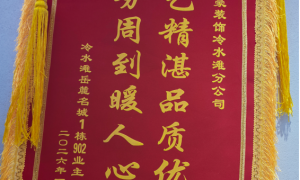 象装饰冷水滩分公司
艺精湛品质优
务周到暖人心
冷水滩岳麓名城1栋902业主
二〇二六年一